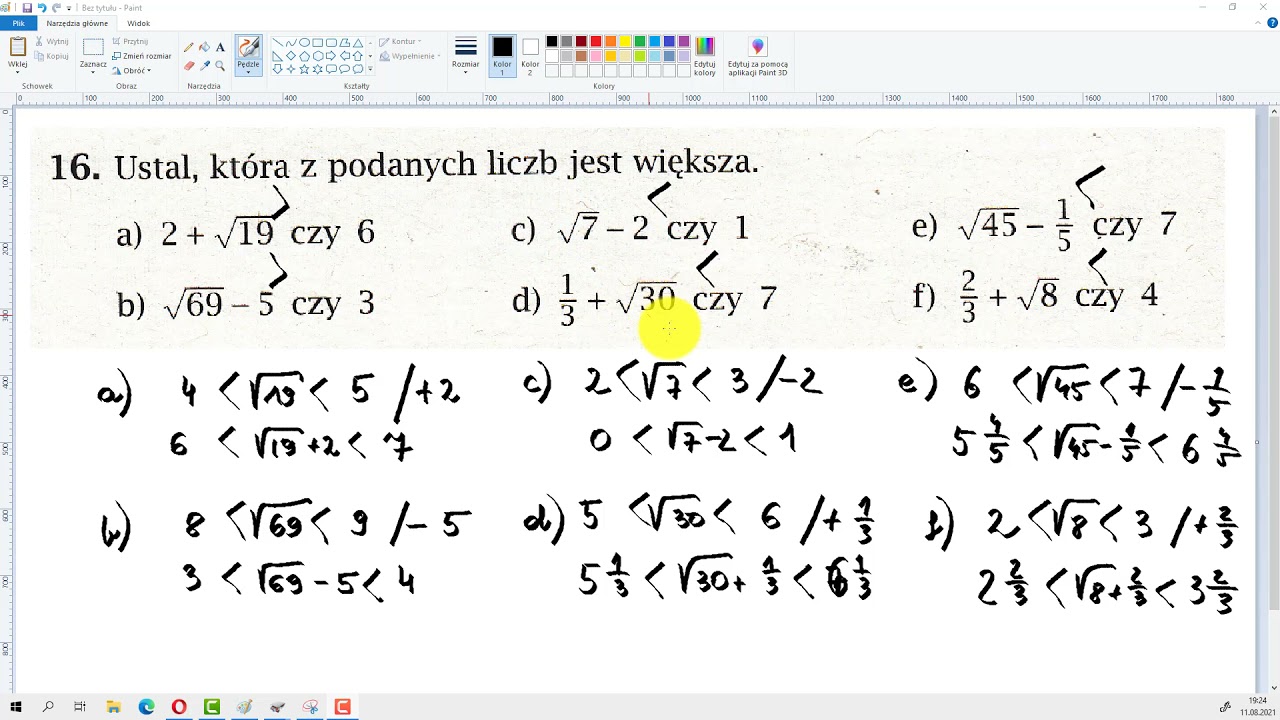 Bez tytułu - Paint
Plik Narzędzia główne Widok
Wklej Wytnij Kopiuj Schowek
Zaznacz Przytnij Zmień rozmiar Obróć Obraz
Narzędzia
Pędzle
Kontur Wypełnienie Kształty
Rozmiar
Kolor 1 Kolor 2 Edytuj kolory Kolory
Edytuj za pomocą aplikacji Paint 3D
0 100 200 300 400 500 600 700 800 900 1000 1100 1200 1300 1400 1500 1600 1700 1800
0 100 200 300 400 500 600 700 800
16. Ustal, która z podanych liczb jest większa.
a) 2 + √19 > czy 6
c) √7 – 2 < czy 1
e) √45 – 1/5 < czy 7
b) √69 – 5 > czy 3
d) 1/3 + √30 < czy 7
f) 2/3 + √8 < czy 4
a) 4 < √19 < 5 /+2
6 < √19+2 < 7
c) 2 < √7 < 3 /-2
0 < √7-2 < 1
e) 6 < √45 < 7 /- 1/5
5 4/5 < √45 - 1/5 < 6 4/5
b) 8 < √69 < 9 /- 5
3 < √69 - 5 < 4
d) 5 < √30 < 6 /+ 1/3
5 1/3 < √30 + 1/3 < 6 1/3
f) 2 < √8 < 3 /+ 2/3
2 2/3 < √8 + 2/3 < 3 2/3
19:24
11.08.2021